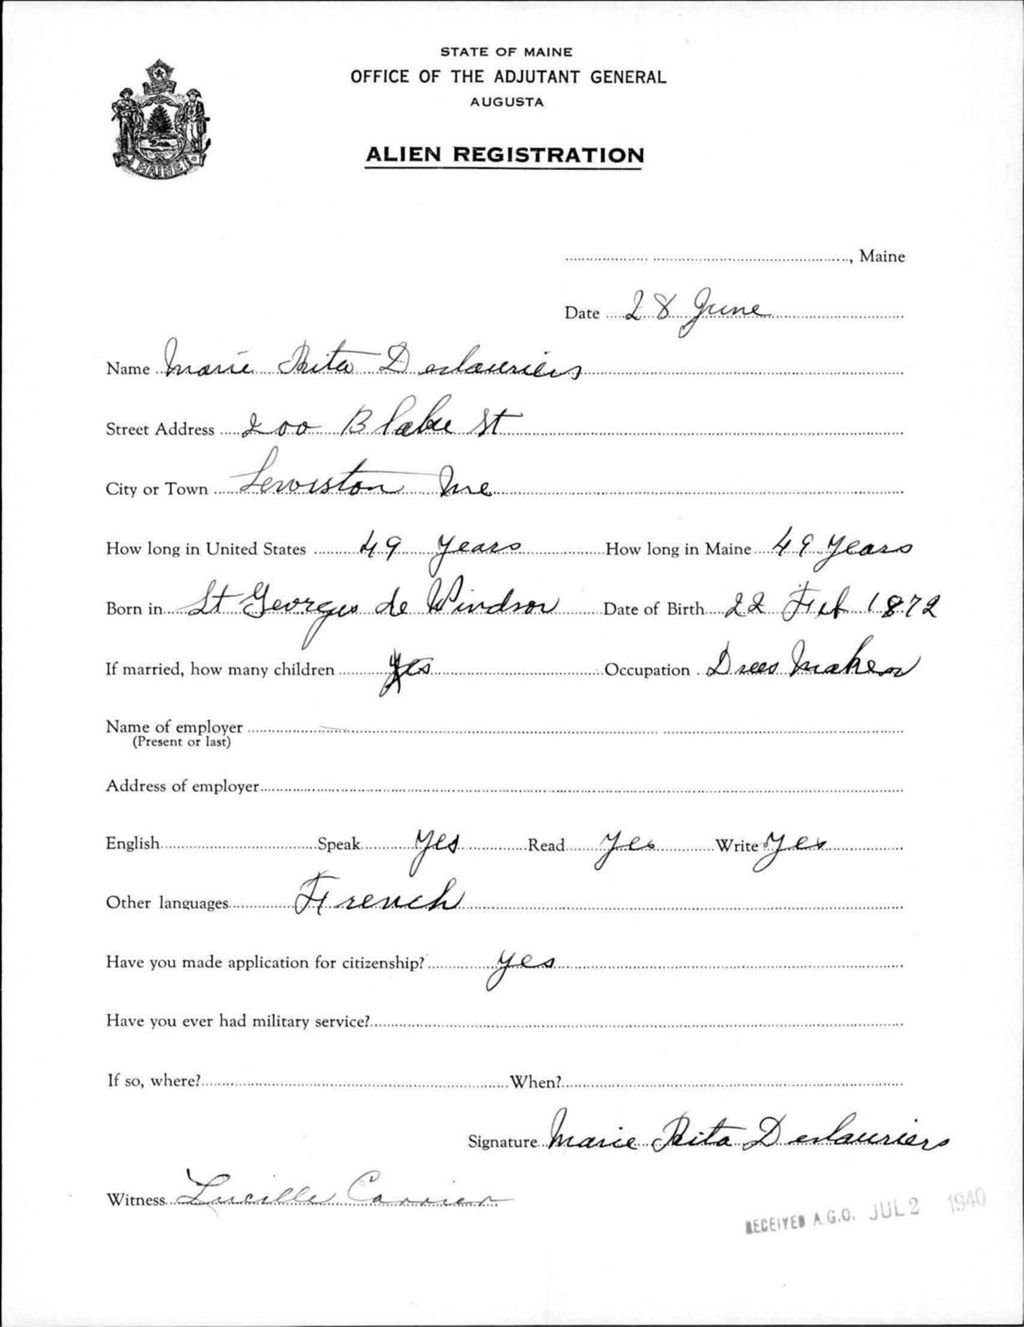 STATE OF MAINE
OFFICE OF THE ADJUTANT GENERAL
AUGUSTA
ALIEN REGISTRATION
MAINE
, Maine
Date 28 June
Name Marie Rita Deslauriers
Street Address 200 Blake St
City or Town Lewiston Me
How long in United States 49 years How long in Maine 49 years
Born in St Georges de Windsor Date of Birth 22 Feb 1872
If married, how many children Yes Occupation Dress Maker
Name of employer
(Present or last)
Address of employer
English Speak Yes Read Yes Write Yes
Other languages French
Have you made application for citizenship? Yes
Have you ever had military service?
If so, where? When?
Signature Marie Rita Deslauriers
Witness Lucille Carrier
RECEIVED A.G.O. JUL 2 1940